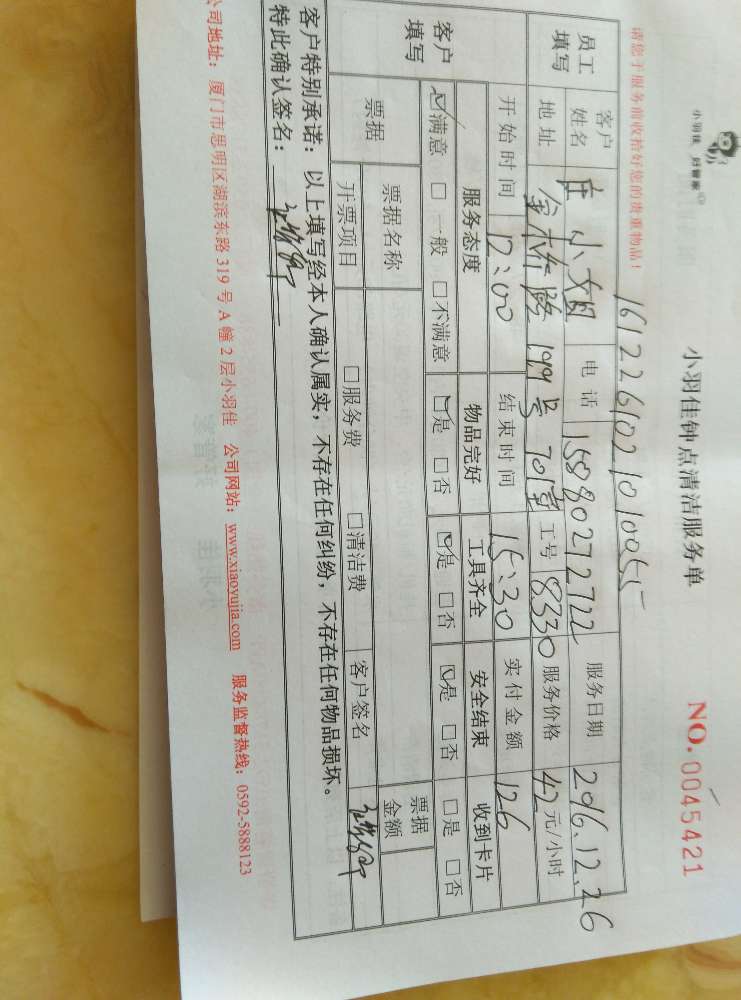 小羽佳 好管家
小羽佳钟点清洁服务单
NO. 0045421
161226102101010055
请您于服务前收拾好您的贵重物品！
员工填写
客户姓名
庄小姐
电话 15880272722
服务日期 2016.12.26
地址
金桥路199号701室
工号 8330
服务价格 42元/小时
开始时间 12:00
结束时间 15:30
实付金额 126
客户填写
服务态度 物品完好 工具齐全 安全结束 收到卡片
☑满意 □一般 □不满意 ☑是 □否 ☑是 □否 ☑是 □否 □是 □否
票据 票据名称 票据金额
开票项目 □服务费 □清洁费 客户签名
客户特别承诺：以上填写经本人确认属实，不存在任何纠纷，不存在任何物品损坏。
特此确认签名：
公司地址：厦门市思明区湖滨东路319号A幢2层小羽佳 公司网站：www.xiaoyujia.com 服务监督热线：0592-5888123